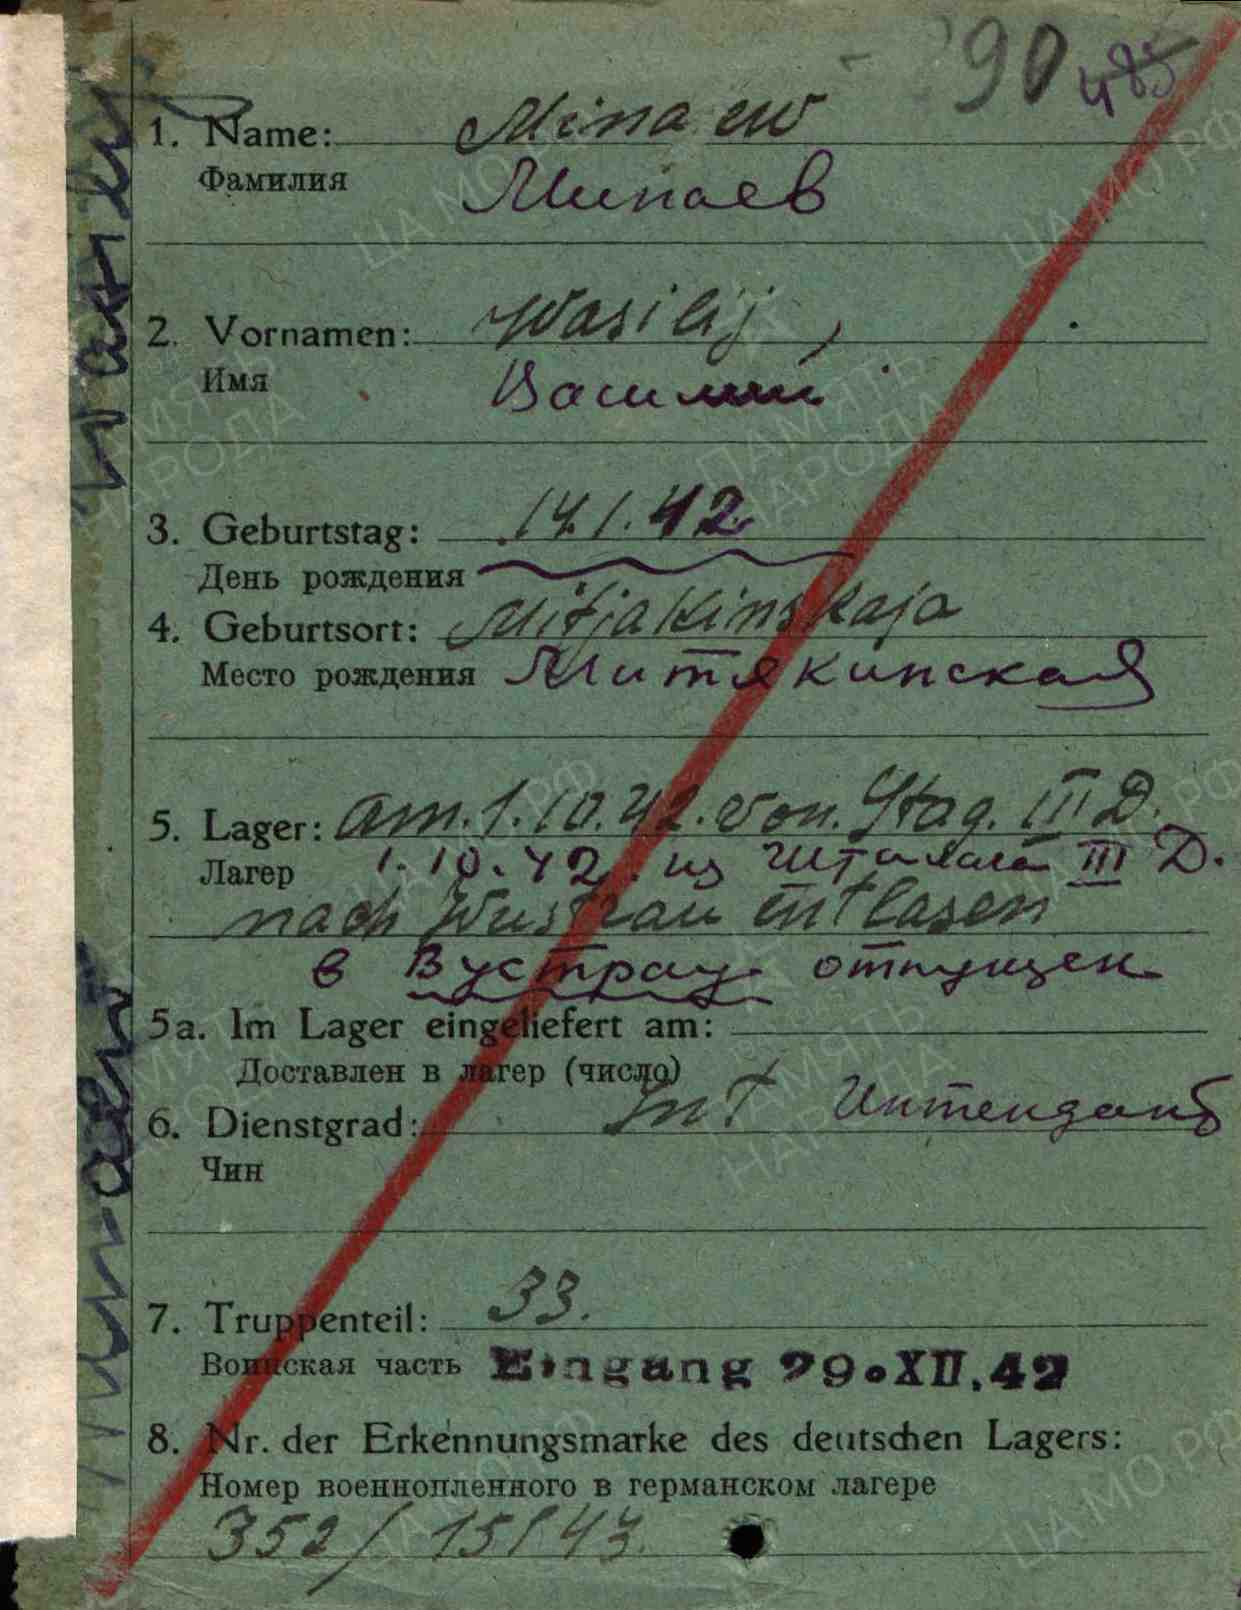 90 485
1. Name: Minaew
Фамилия Минаев
2. Vornamen: Wasilij,
Имя Василий
3. Geburtstag: 14.1.42
День рождения
4. Geburtsort: Mitjakinskaja
Место рождения Митякинская
5. Lager: am. 1.10.42. von. Stag. III D.
Лагер 1.10.42. из Шталага III D.
nach Wustrau entlasen
в Вустрау отпущен
5a. Im Lager eingeliefert am:
Доставлен в лагер (число)
6. Dienstgrad: Int Интендант
Чин
7. Truppenteil: 33.
Воинская часть Eingang 29.XII.42
8. Nr. der Erkennungsmarke des deutschen Lagers:
Номер военнопленного в германском лагере
352/15143.
Минаев
ЦА МО РФ
ПАМЯТЬ
НАРОДА